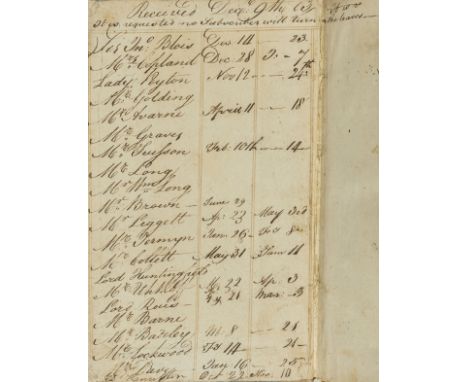 Received Decr. 9th
It is requested no Subscriber will turn the leaves
Sir Jno. Blois Dec 14 — 23
Mr. Copland Dec 28 J — 7
Lady Nov 12 — 24th
Mr. Golding
Mr. Avarne April 11 — 18
Mr. Graves
Mr. Feb. 10th — 14
Mr. Long
Mr. Wm. Long
Mr. Brown — June 29
Mr. Leggett Ap. 23 May 3rd
Mr. Jermyn Jan. 26 — Feb 8
Mr. Collett May 31 June 11
Lord Huntingfield
Mr. 22 Ap. 3
Lord Rous 21 Mar. 3
Mr. Barne
Mr. Badeley M. 8 — 21
Mr. Lockwood Feb 14 — 21
Mr. Davy Jany 16 — 25
Oct 22 Nov. 10